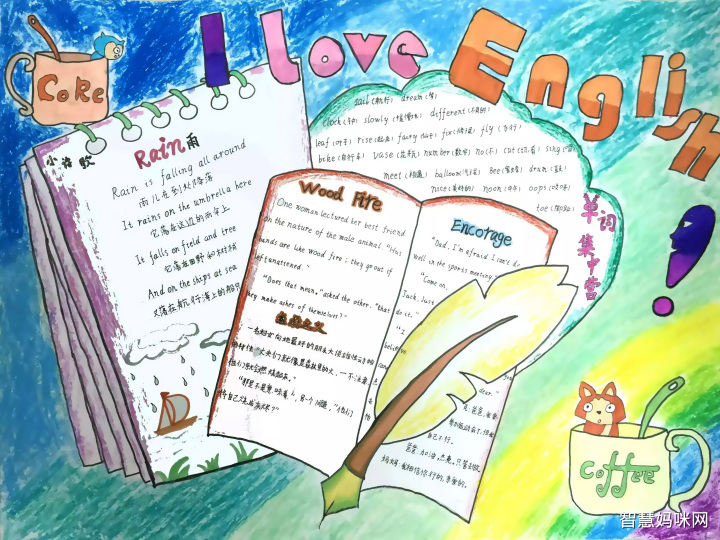 I Love English!
CoRe
小诗歌
Rain雨
Rain is falling all around
雨儿在到处降落
It rains on the umbrella here
它落在这边的雨伞上
It falls on field and tree
它落在田野和树梢
And on the ships at sea
又落在航行海上的船只
clock(时钟) slowly(慢慢地) different(不同的)
leaf(叶子) rise(起立) fairy fox(狐狸) fly(飞行)
bike(自行车) vase(花瓶) number(数字) no(不) cut sing
meet(相遇) balloon(气球) Bee(蜜蜂) drum
nice(美好的) noon(中午) oops
toe
单词集中营
Wood Fire
One woman lectured her best friend
on the nature of the male animal. "Hus
bands are like wood fire; they go out if
left unattened."
"Does that mean," asked the other, "that
they make ashes of themselves?"
一名妇女向她最好的朋友大谈
丈夫们就像是 一不注意,
他们就会燃烧起来。"
"那是不是意味着", 另一个问道, "他们
将自己烧成灰烬?"
Encorage
"Dad, I'm afraid I can't do
well in the sports meeting."
"Come on,
Jack. Just
do it."
"I
believe
dear."
自己不行。
爸爸: 加油, 杰克, 只管去做
妈妈: 我相信你行的, 亲爱的。
Coffee
智慧妈咪网